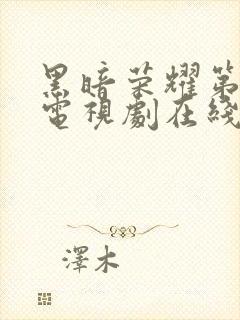 黑暗荣耀第
電視劇在綫
澤木